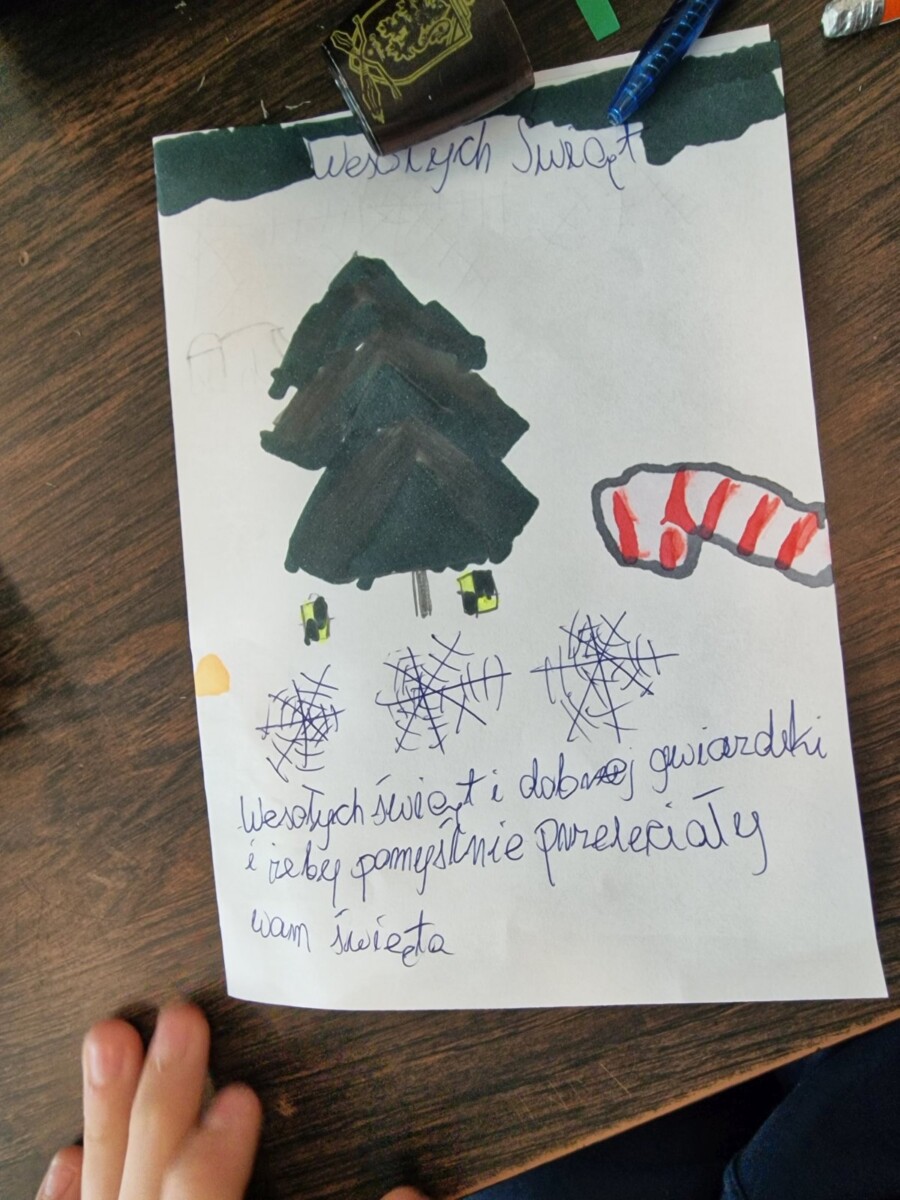 Wesołych Świąt
Wesołych świąt i dobrej gwiazdki
i żeby pomyślnie przeleciały
wam święta